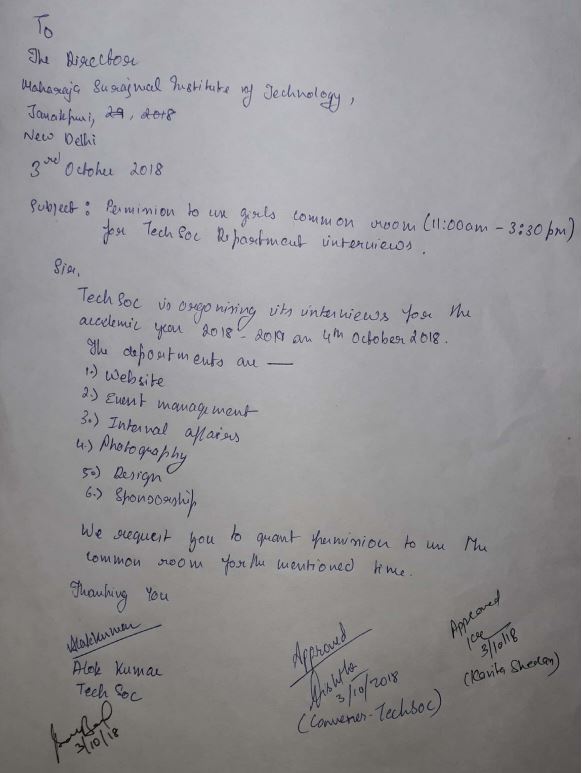 To
The Director
Maharaja Surajmal Institute of Technology,
Janakpuri, 29, 2018
New Delhi
3rd October 2018
Subject: Permission to use girls common room (11:00am - 3:30pm)
for Tech Soc Department interviews.
Sir,
Tech Soc is organising its interviews for the
academic year 2018 - 2019 on 4th October 2018.
The departments are —
1.) Website
2.) Event management
3.) Internal affairs
4.) Photography
5.) Design
6.) Sponsorship
We request you to grant permission to use the
common room for the mentioned time.
Thanking You
Alok Kumar
Alok Kumar
Tech Soc
3/10/18
Approved
3/10/2018
(Convener - TechSoc)
Approved
3/10/18
(Kavita Sheoran)